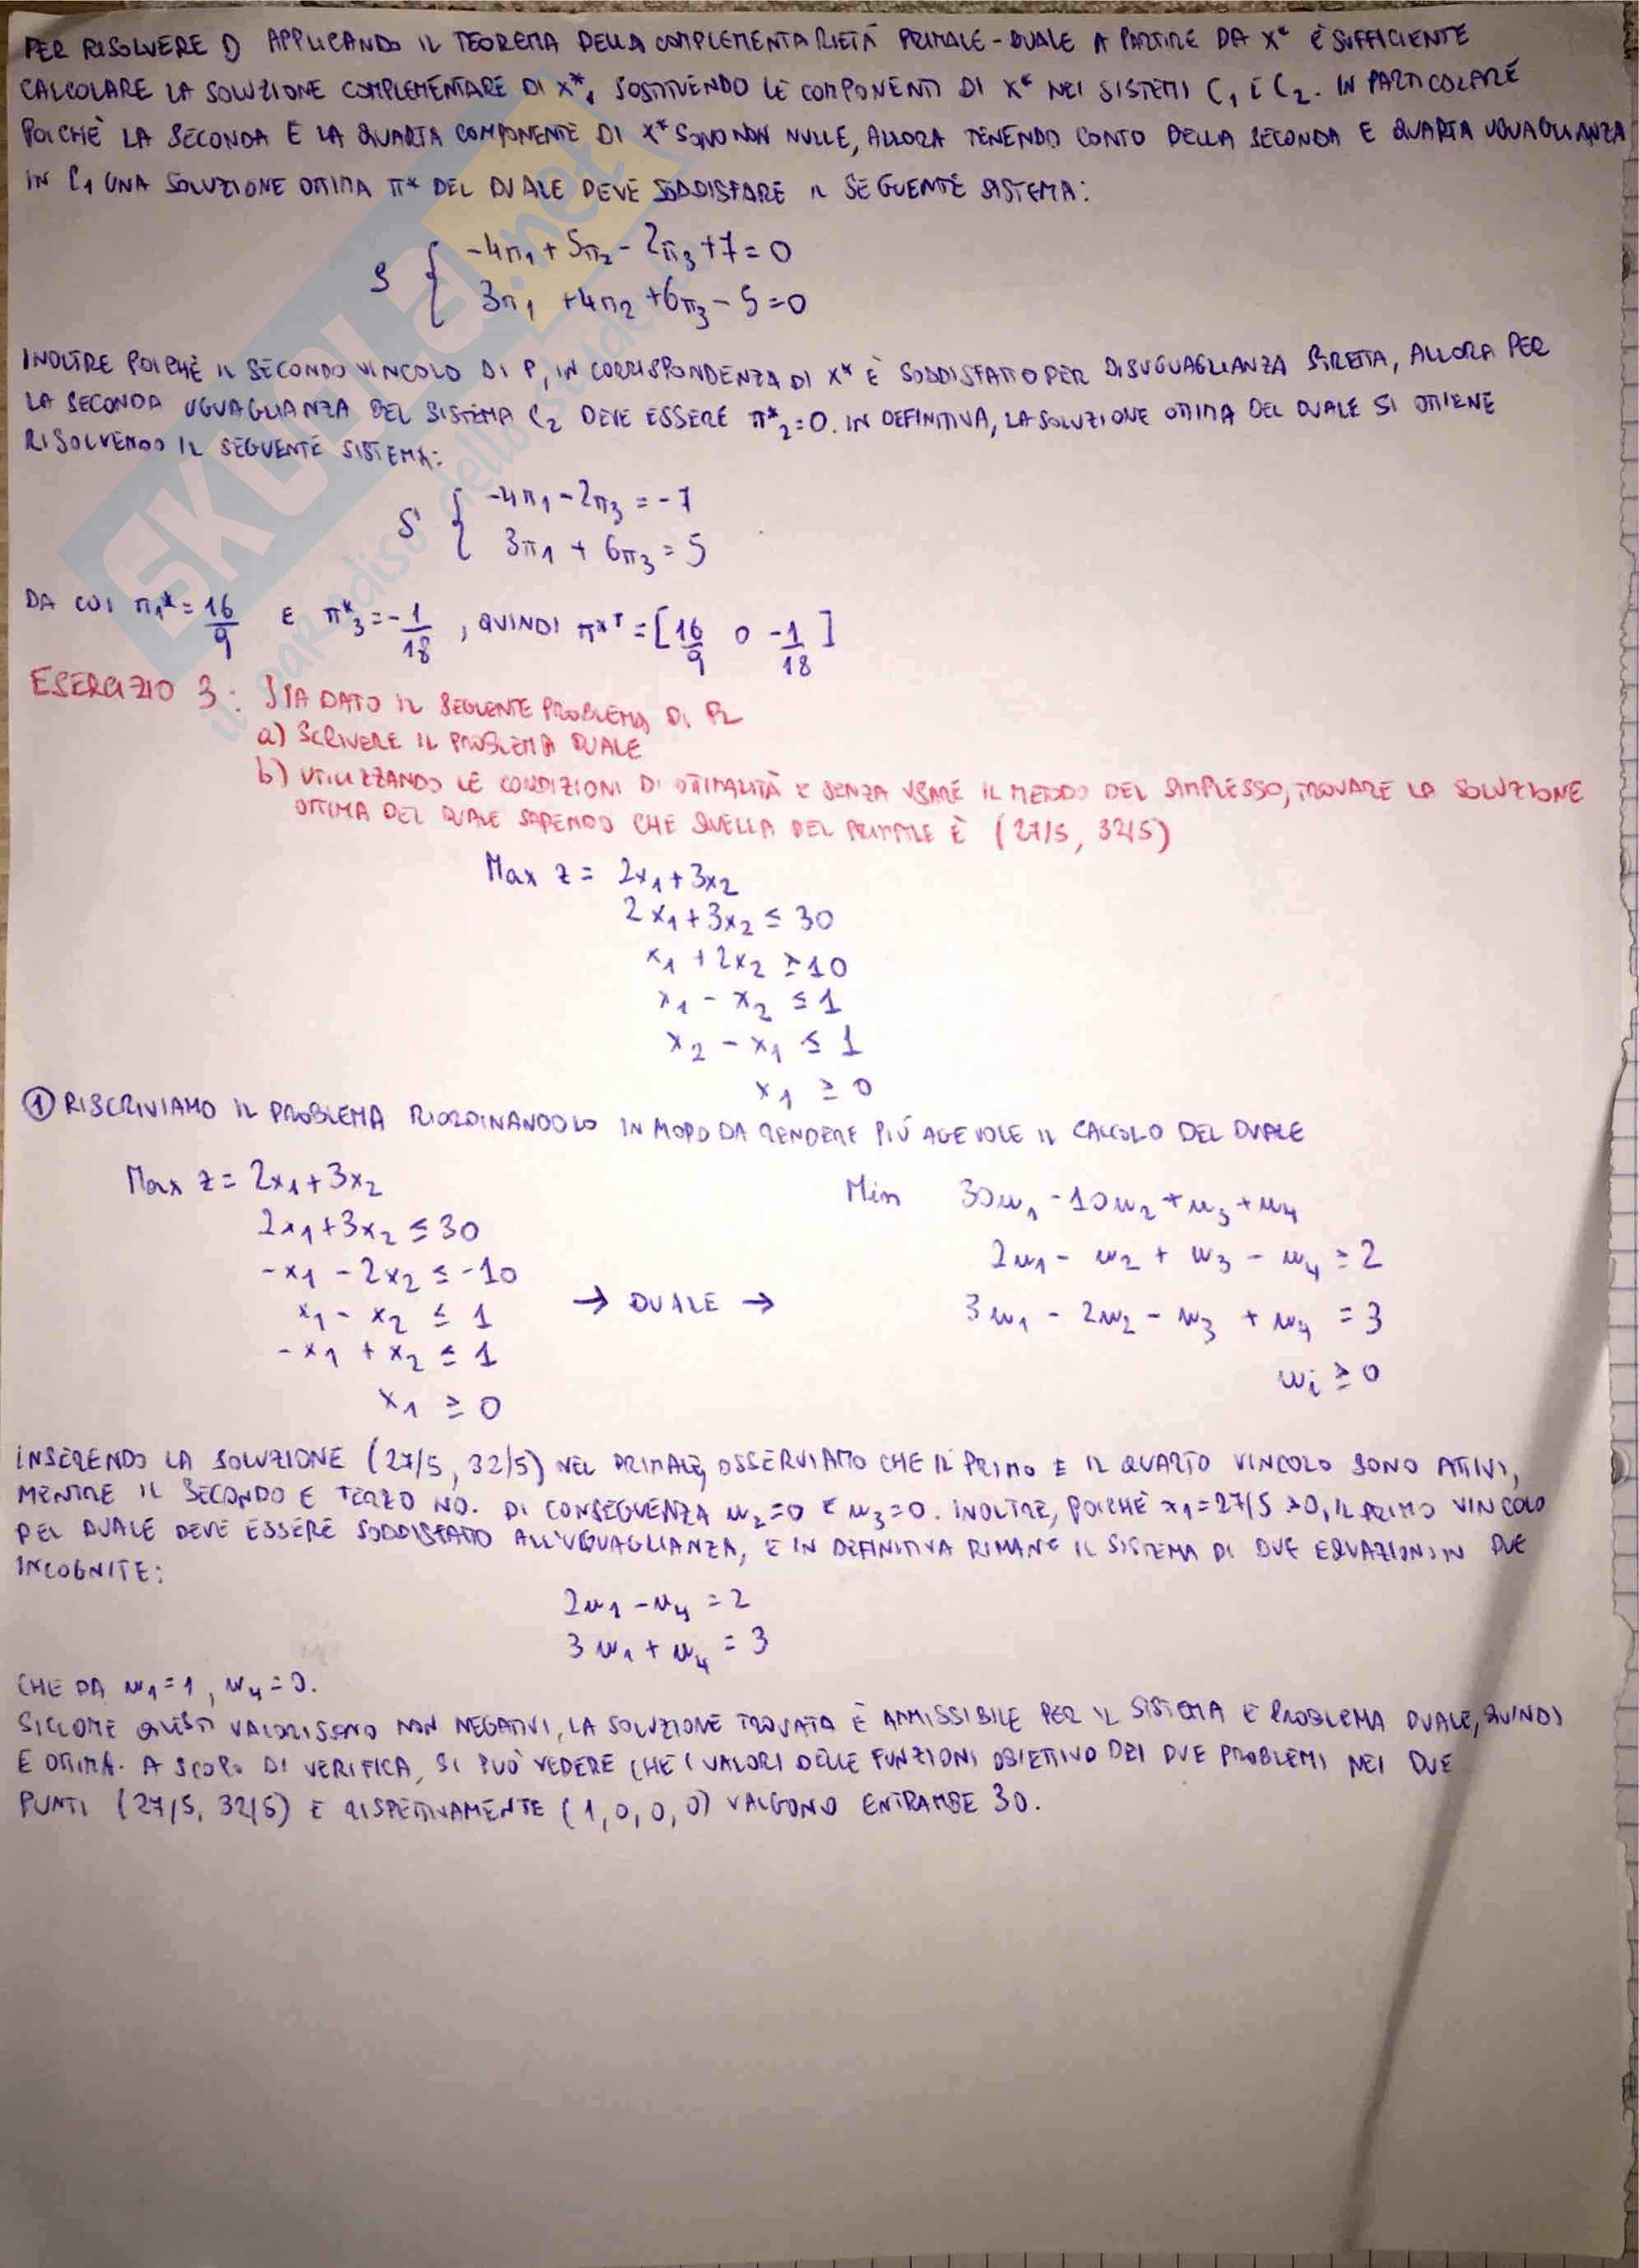 PER RISOLVERE D APPLICANDO IL TEOREMA DELLA COMPLEMENTARIETÀ PRIMALE-DUALE A PARTIRE DA X* È SUFFICIENTE
CALCOLARE LA SOLUZIONE COMPLEMENTARE DI X*, SOSTITUENDO LE COMPONENTI DI X* NEI SISTEMI C1 E C2. IN PARTICOLARE
POICHÈ LA SECONDA E LA QUARTA COMPONENTE DI X* SONO NON NULLE, ALLORA TENENDO CONTO DELLA SECONDA E QUARTA UGUAGLIANZA
IN C1 UNA SOLUZIONE OTTIMA π* DEL DUALE DEVE SODDISFARE IL SEGUENTE SISTEMA:
S { -4π1 + 5π2 - 2π3 + 7 = 0
3π1 + 4π2 + 6π3 - 5 = 0
INOLTRE POICHÈ IL SECONDO VINCOLO DI P, IN CORRISPONDENZA DI X* È SODDISFATTO PER DISUGUAGLIANZA STRETTA, ALLORA PER
LA SECONDA UGUAGLIANZA DEL SISTEMA C2 DEVE ESSERE π*2=0. IN DEFINITIVA, LA SOLUZIONE OTTIMA DEL DUALE SI OTTIENE
RISOLVENDO IL SEGUENTE SISTEMA:
S { -4π1 - 2π3 = -7
3π1 + 6π3 = 5
DA CUI π1* = 16/9 E π*3 = -1/18, QUINDI π*T = [16/9 0 -1/18]
ESERCIZIO 3: SIA DATO IL SEGUENTE PROBLEMA DI PL
a) SCRIVERE IL PROBLEMA DUALE
b) UTILIZZANDO LE CONDIZIONI DI OTTIMALITÀ E SENZA USARE IL METODO DEL SIMPLESSO, TROVARE LA SOLUZIONE
OTTIMA DEL DUALE SAPENDO CHE QUELLA DEL PRIMALE È (27/5, 32/5)
Max z = 2x1+3x2
2x1+3x2 ≤ 30
x1 + 2x2 ≥ 10
x1 - x2 ≤ 1
x2 - x1 ≤ 1
x1 ≥ 0
① RISCRIVIAMO IL PROBLEMA RIORDINANDOLO IN MODO DA RENDERE PIÙ AGEVOLE IL CALCOLO DEL DUALE
Max z = 2x1+3x2
2x1+3x2 ≤ 30
-x1 - 2x2 ≤ -10
x1 - x2 ≤ 1
-x1 + x2 ≤ 1
x1 ≥ 0
→ DUALE →
Min 30u1 - 10u2 + u3 + u4
2u1 - u2 + u3 - u4 ≥ 2
3u1 - 2u2 - u3 + u4 = 3
ui ≥ 0
INSERENDO LA SOLUZIONE (27/5, 32/5) NEL PRIMALE, OSSERVIAMO CHE IL PRIMO E IL QUARTO VINCOLO SONO ATTIVI,
MENTRE IL SECONDO E TERZO NO. DI CONSEGUENZA u2=0 E u3=0. INOLTRE, POICHÈ x1=27/5 >0, IL PRIMO VINCOLO
DEL DUALE DEVE ESSERE SODDISFATTO ALL'UGUAGLIANZA, E IN DEFINITIVA RIMANE IL SISTEMA DI DUE EQUAZIONI IN DUE
INCOGNITE:
2u1 - u4 = 2
3u1 + u4 = 3
CHE DA u1=1, u4=0.
SICCOME QUESTI VALORI SONO NON NEGATIVI, LA SOLUZIONE TROVATA È AMMISSIBILE PER IL SISTEMA E PROBLEMA DUALE, QUINDI
E OTTIMA. A SCOPO DI VERIFICA, SI PUÒ VEDERE CHE I VALORI DELLE FUNZIONI OBIETTIVO DEI DUE PROBLEMI NEI DUE
PUNTI (27/5, 32/5) E RISPETTIVAMENTE (1,0,0,0) VALGONO ENTRAMBE 30.
SKUOLA.net
il paradiso dello studente